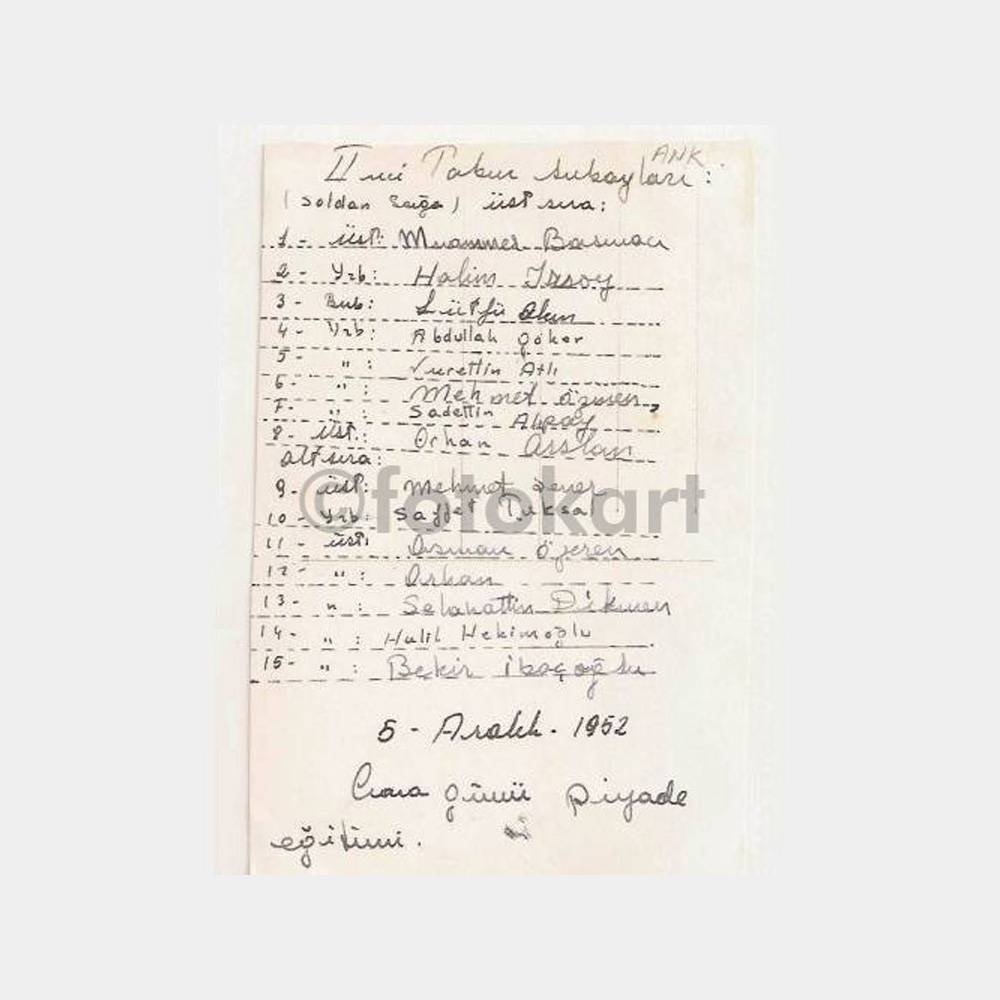 ANK
II nci Tabur subayları:
(Soldan Sağa) üst sıra:
1- üst: Muammer Basmacı
2- Yzb: Halim Irsoy
3- Bnb: Lütfü Akın
4- Yzb: Abdullah Göker
5- " : Nurettin Atlı
6- " : Mehmet Özmen,
7- " : Sadettin Alpay
8- Üst.: Orhan Arslan
alt sıra:
9- üst: Mehmet Şener
10- Yzb: Saffet Tuksal
11- üst: Osman Özeren
12- " : Orhan
13- " : Selahattin Dikmen
14- " : Halil Hekimoğlu
15- " : Bekir
5- Aralık- 1952
Cuma günü piyade
eğitimi.
©fotokart